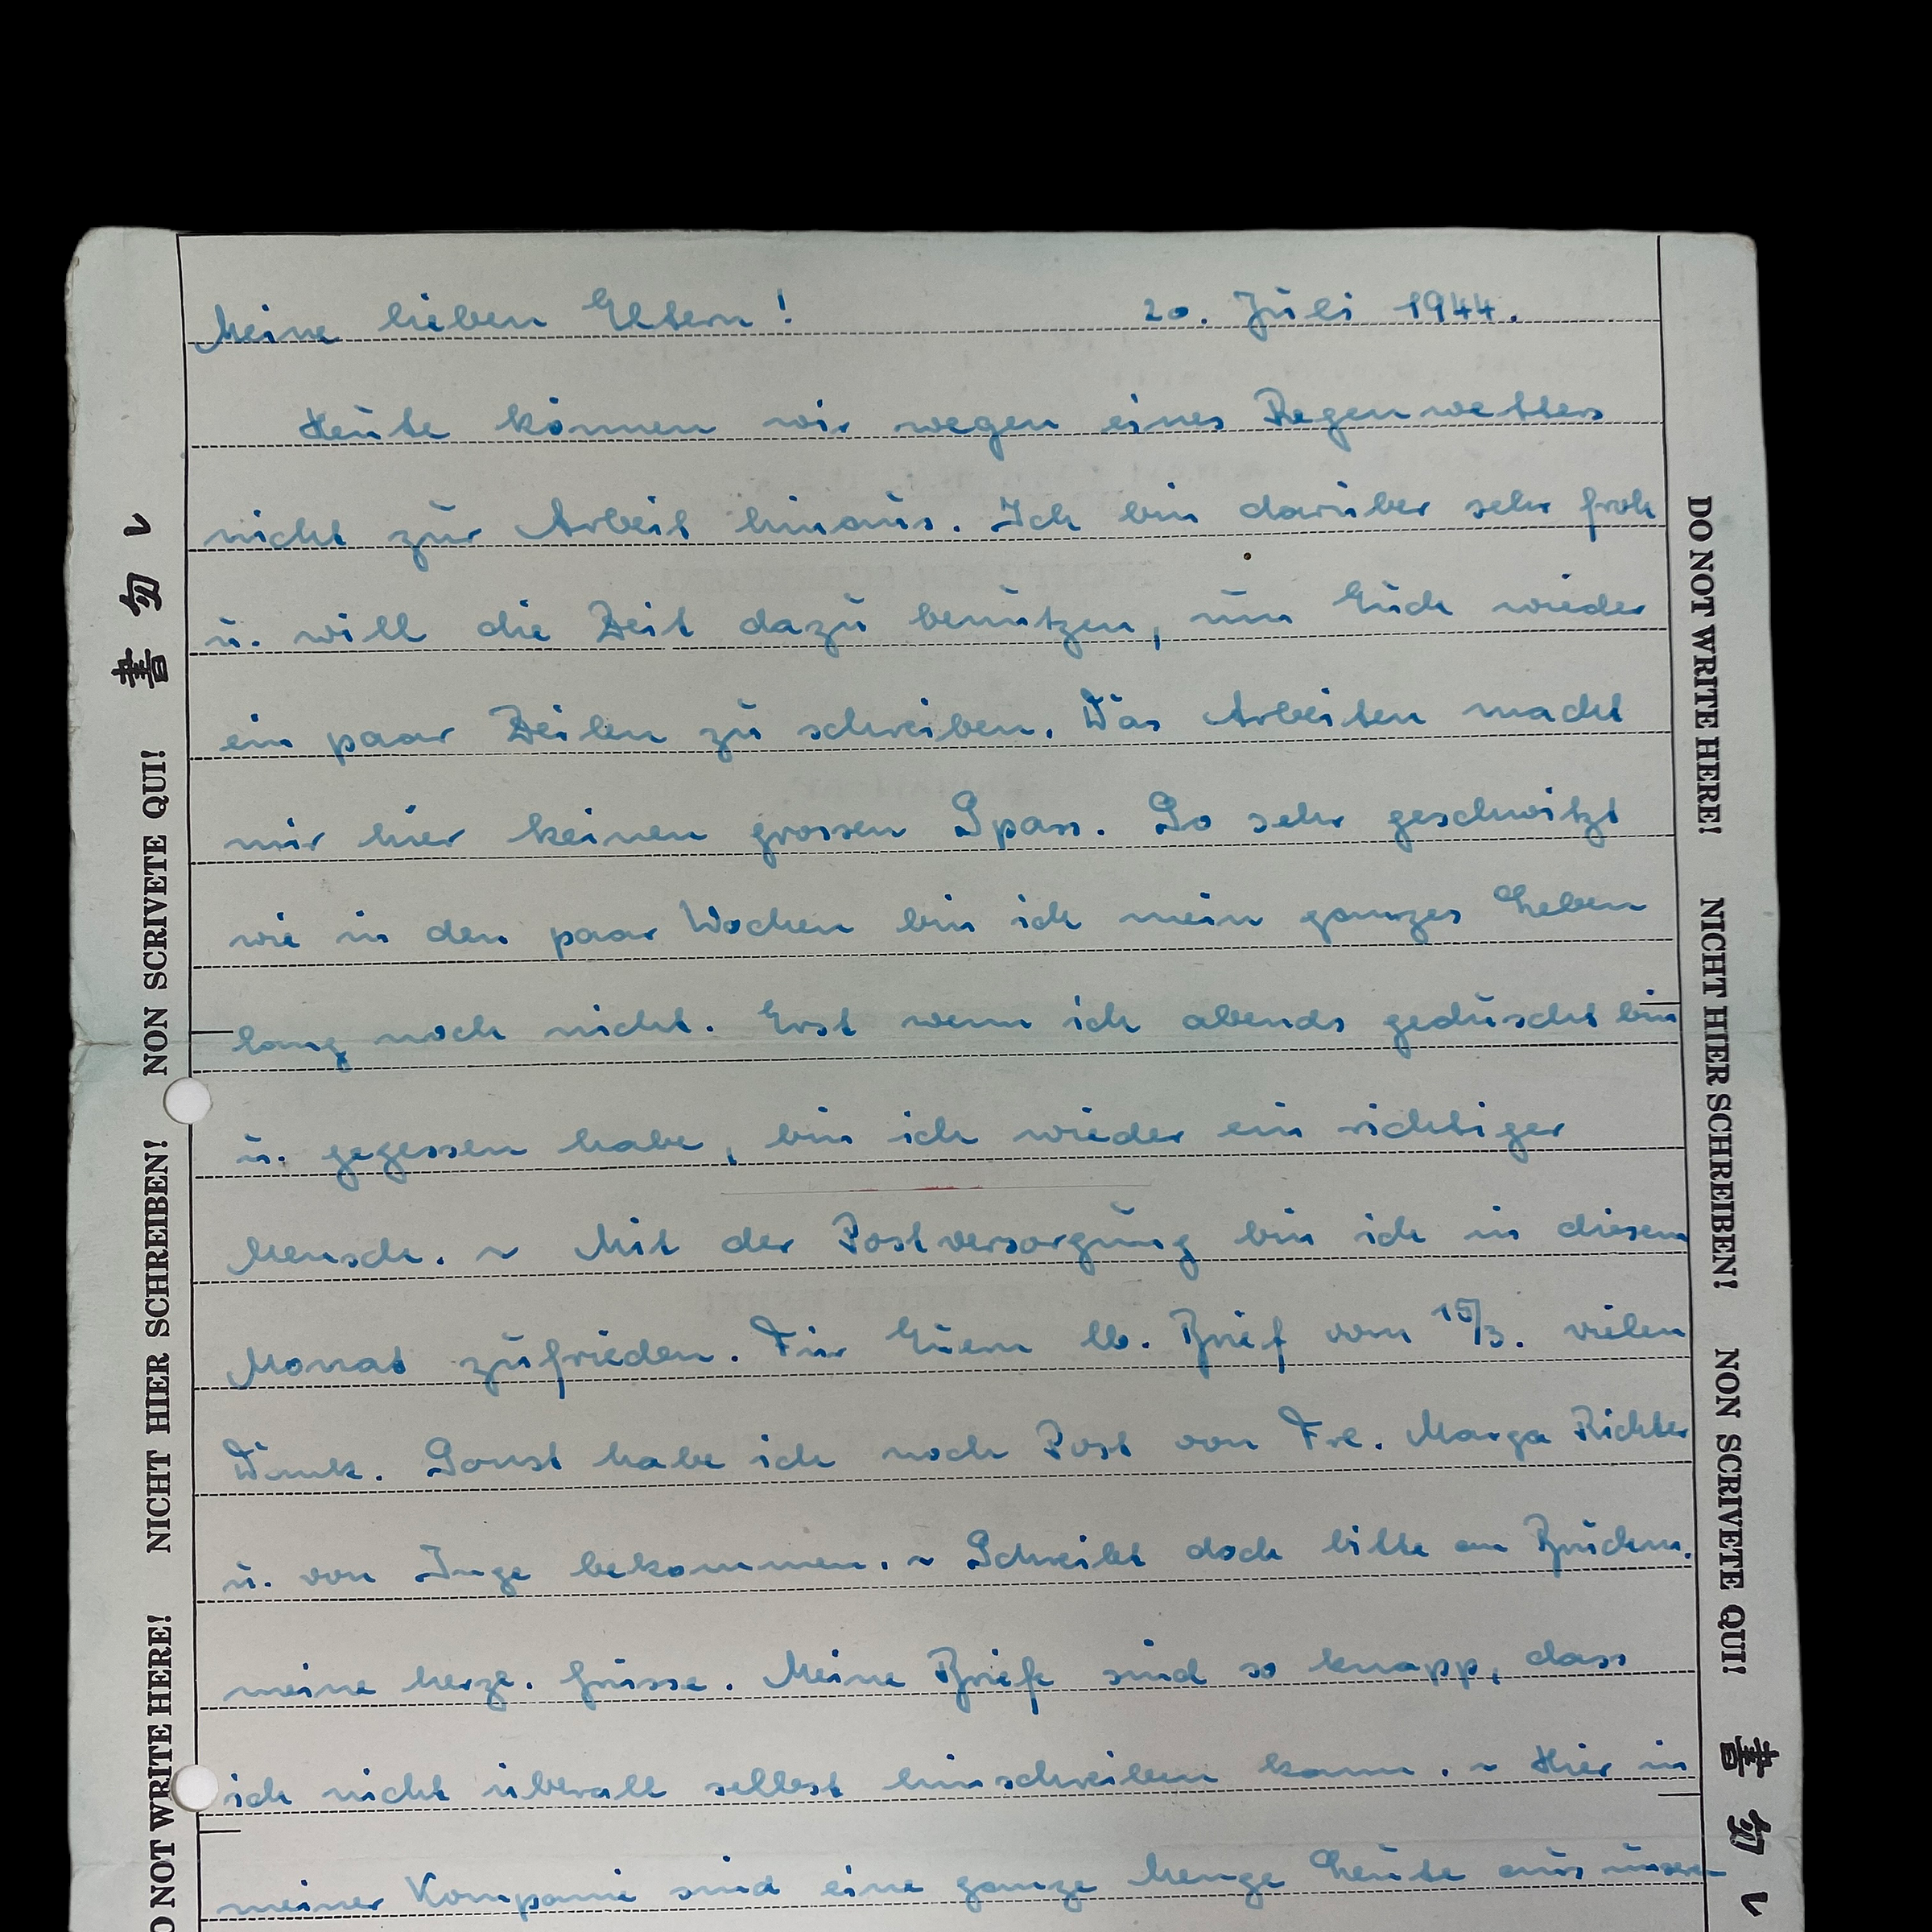 Meine lieben Eltern! 20. Juli 1944.
Heute können wir wegen eines Regenwetters
nicht zur Arbeit hinaus. Ich bin darüber sehr froh
u. will die Zeit dazu benützen, um Euch wieder
ein paar Zeilen zu schreiben. Das Arbeiten macht
mir hier keinen grossen Spass. So sehr geschwitzt
wie in den paar Wochen bin ich mein ganzes Leben
lang noch nicht. Erst wenn ich abends geduscht bin
u. gegessen habe, bin ich wieder ein richtiger
Mensch. ~ Mit der Postversorgung bin ich in diesem
Monat zufrieden. Für Euern lb. Brief vom 15/3. vielen
Dank. Sonst habe ich noch Post von Frl. Marga Richter
u. von Inge bekommen. ~ Schreibt doch bitte an
meine herzl. Grüsse. Meine Briefe sind so knapp, dass
ich nicht überall selbst hinschreiben kann. ~ Hier in
meiner Kompanie sind eine ganze Menge Leute aus unserer
NON SCRIVETE QUI! 書勿レ
NICHT HIER SCHREIBEN!
DO NOT WRITE HERE!
DO NOT WRITE HERE!
NICHT HIER SCHREIBEN!
NON SCRIVETE QUI!
書勿レ